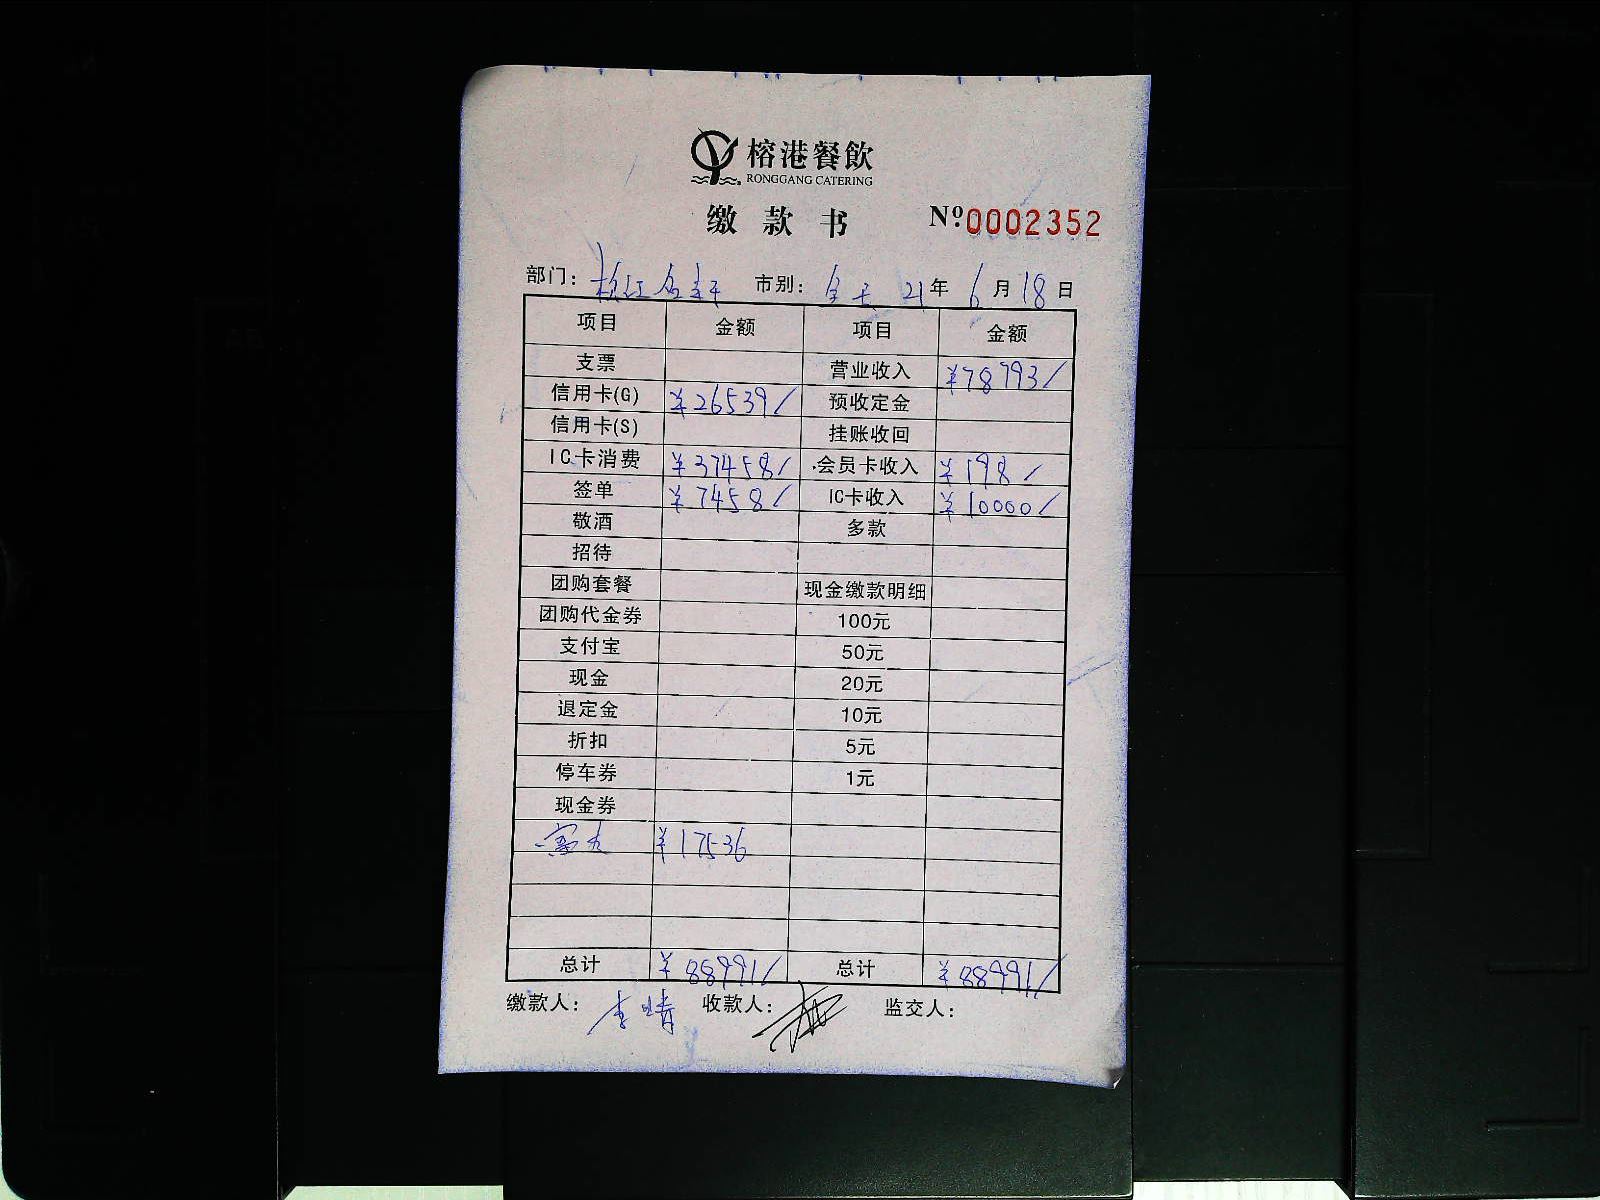 榕港餐飲
RONGGANG CATERING
缴款书 №0002352
部门： 市别：全天 21年6月18日
项目 金额 项目 金额
支票 营业收入 ¥78793/
信用卡(G) ¥26539/ 预收定金
信用卡(S) 挂账收回
IC卡消费 ¥37458/ 会员卡收入 ¥198/
签单 ¥7458/ IC卡收入 ¥10000/
敬酒 多款
招待
团购套餐 现金缴款明细
团购代金券 100元
支付宝 50元
现金 20元
退定金 10元
折扣 5元
停车券 1元
现金券
富友 ¥17536
总计 ¥88991/ 总计 ¥88991/
缴款人：李晴 收款人： 监交人：